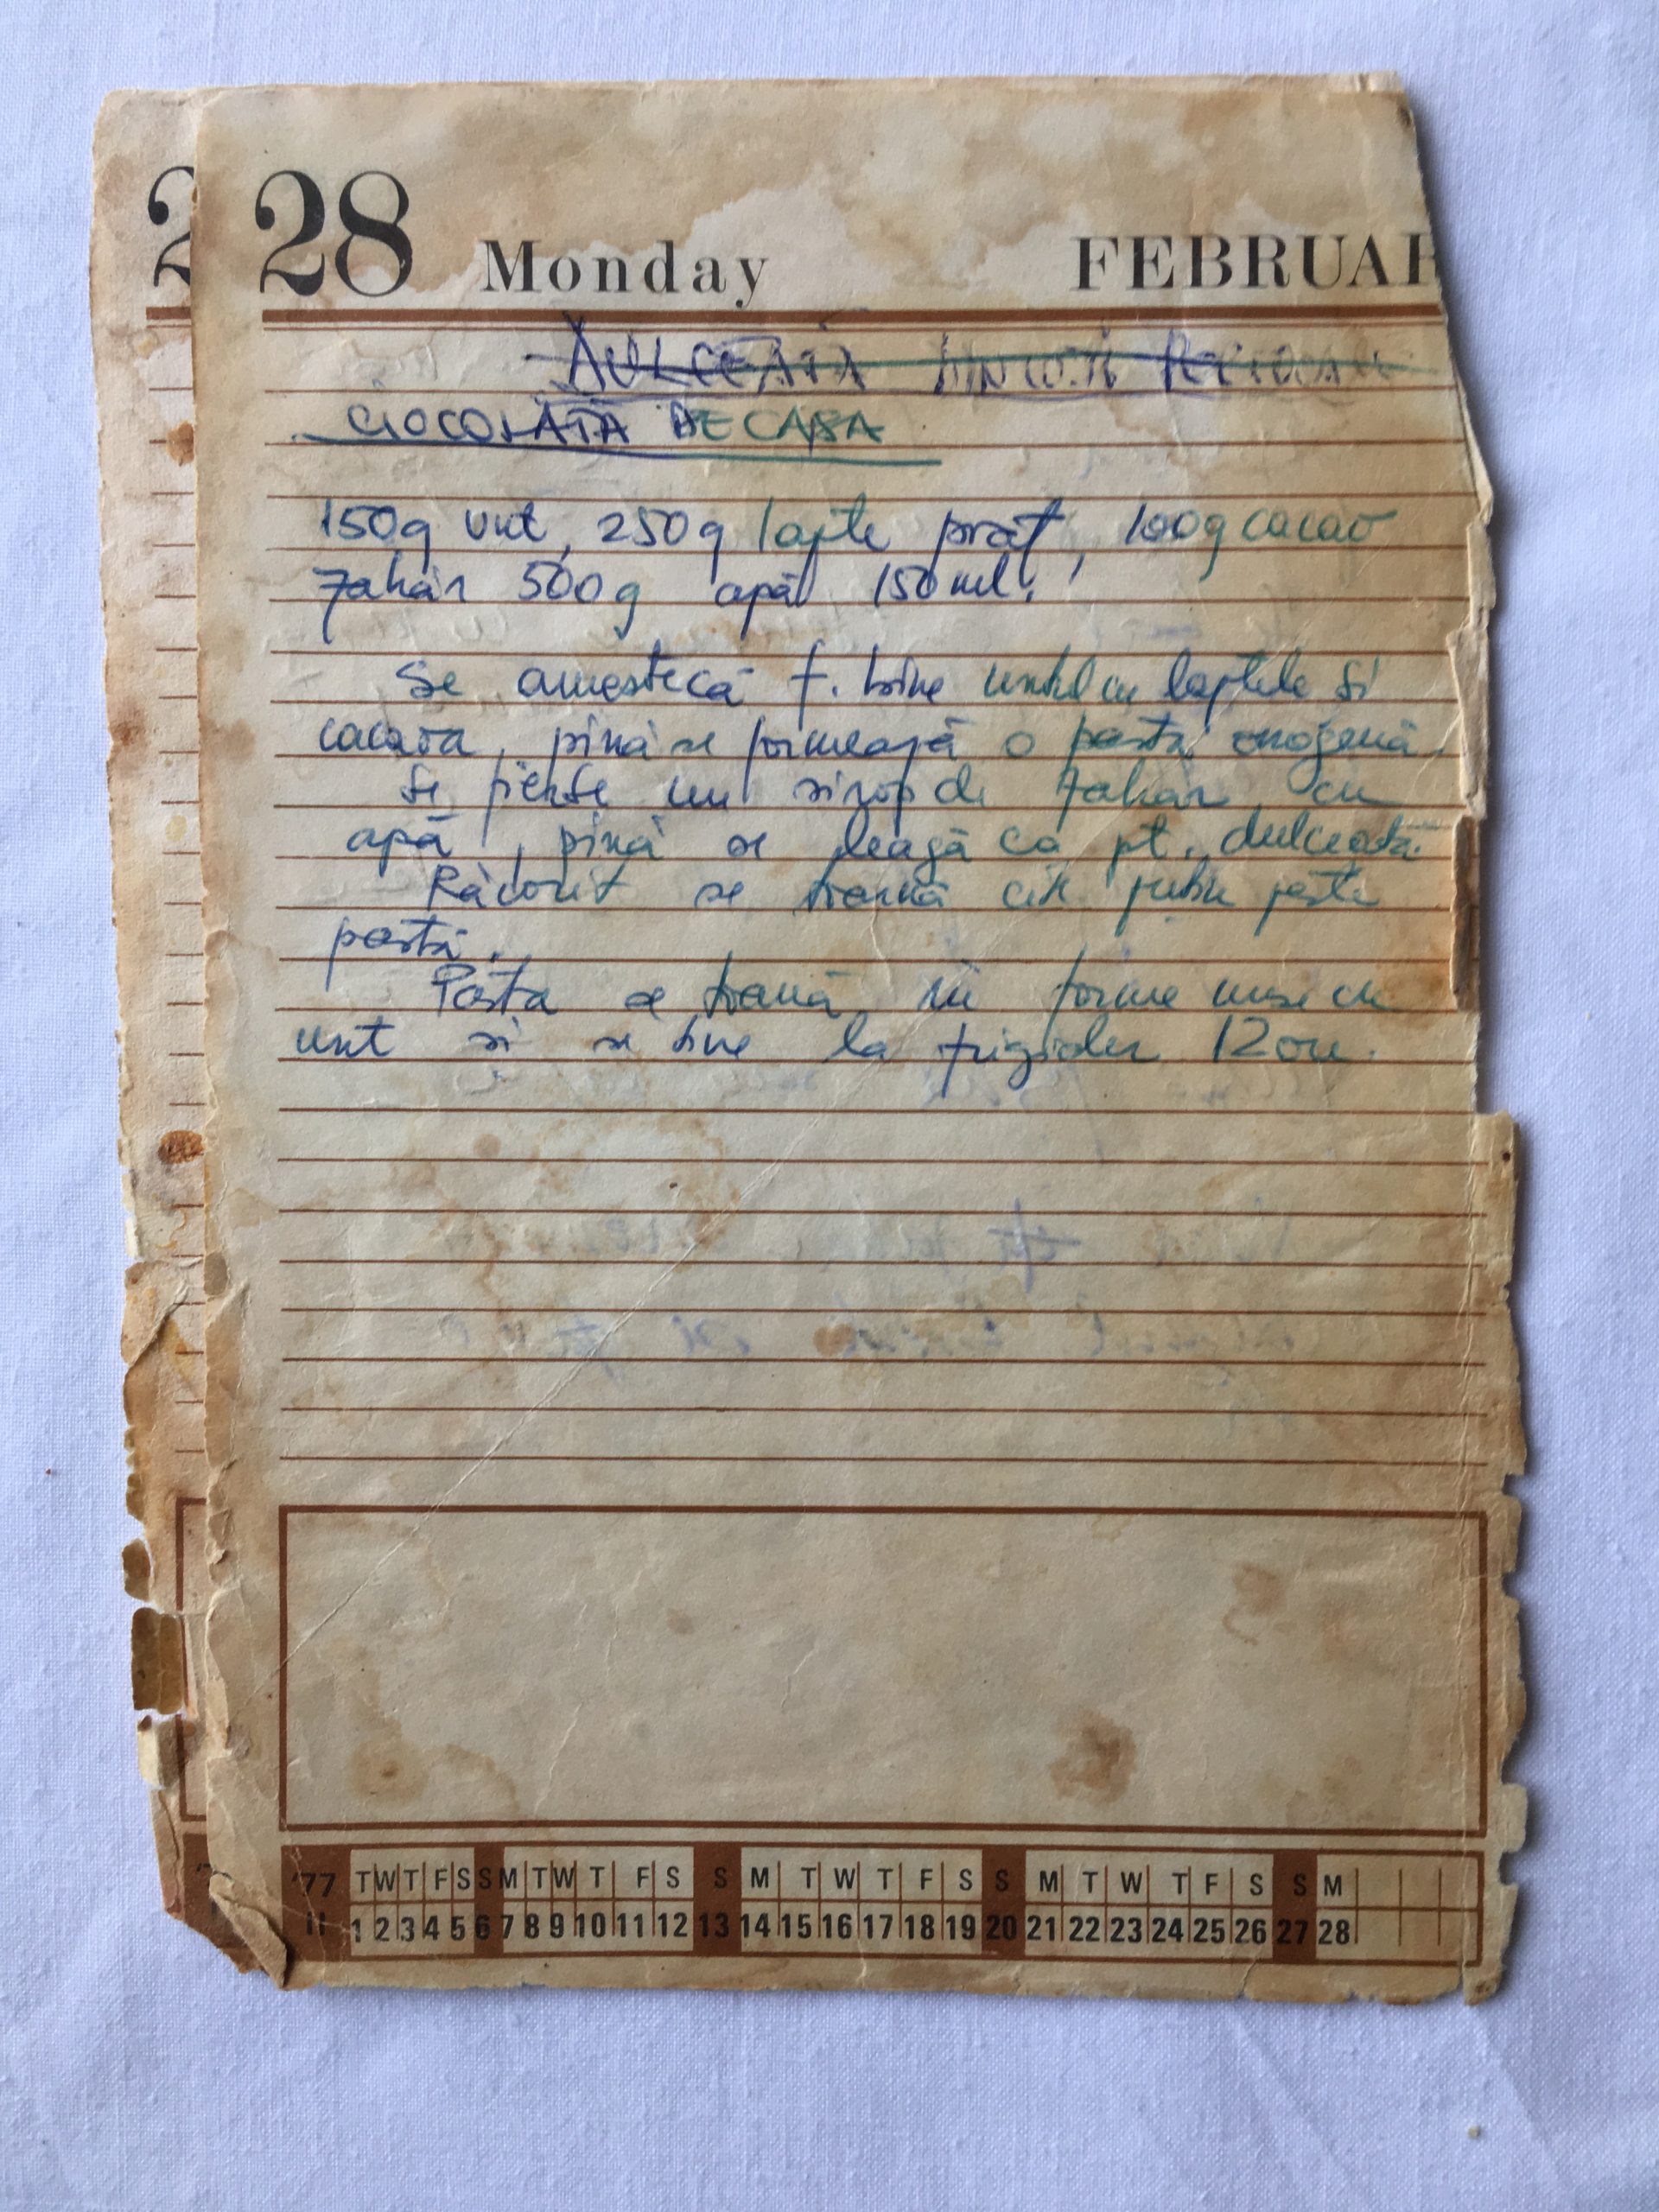 28 Monday FEBRUAR
DULCEAȚĂ DIN COJI
CIOCOLATĂ DE CASA
150g unt, 250g lapte praf, 100g cacao
zahăr 500g apă 150 ml.
Se amestecă f. bine untul cu laptele și
cacaoa, pînă se formează o pastă omogenă.
Se fierbe un sirop de zahăr cu
apă, pînă se leagă ca pt. dulceață.
Răcorit se toarnă cîte puțin peste
pastă.
Pasta se toarnă în forme unse cu
unt si se tine la frigider 12 ore.
'77 T W T F S S M T W T F S S M T W T F S S M T W T F S S M
II 1 2 3 4 5 6 7 8 9 10 11 12 13 14 15 16 17 18 19 20 21 22 23 24 25 26 27 28